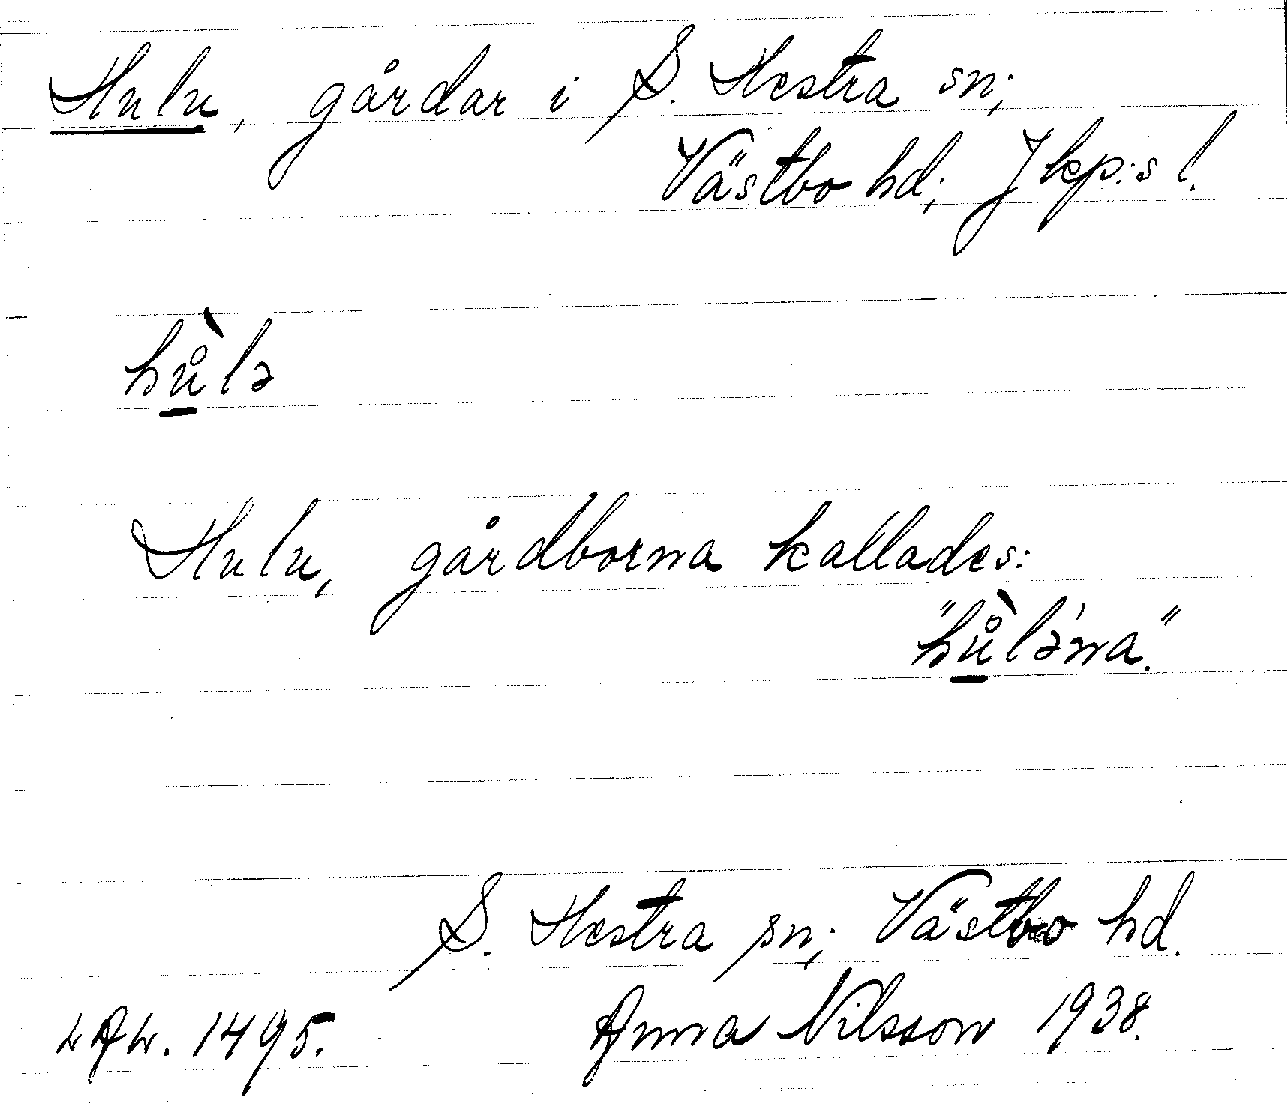 Hulu, gårdar i S. Hestra sn;
Västbo hd; Jkp:s l.
hů̱̀lə
Hulu, gårdborna kallades:
"hů̱̀lə́na."
S. Hestra sn; Västbo hd.
LAL. 1495. Anna Nilsson 1938.